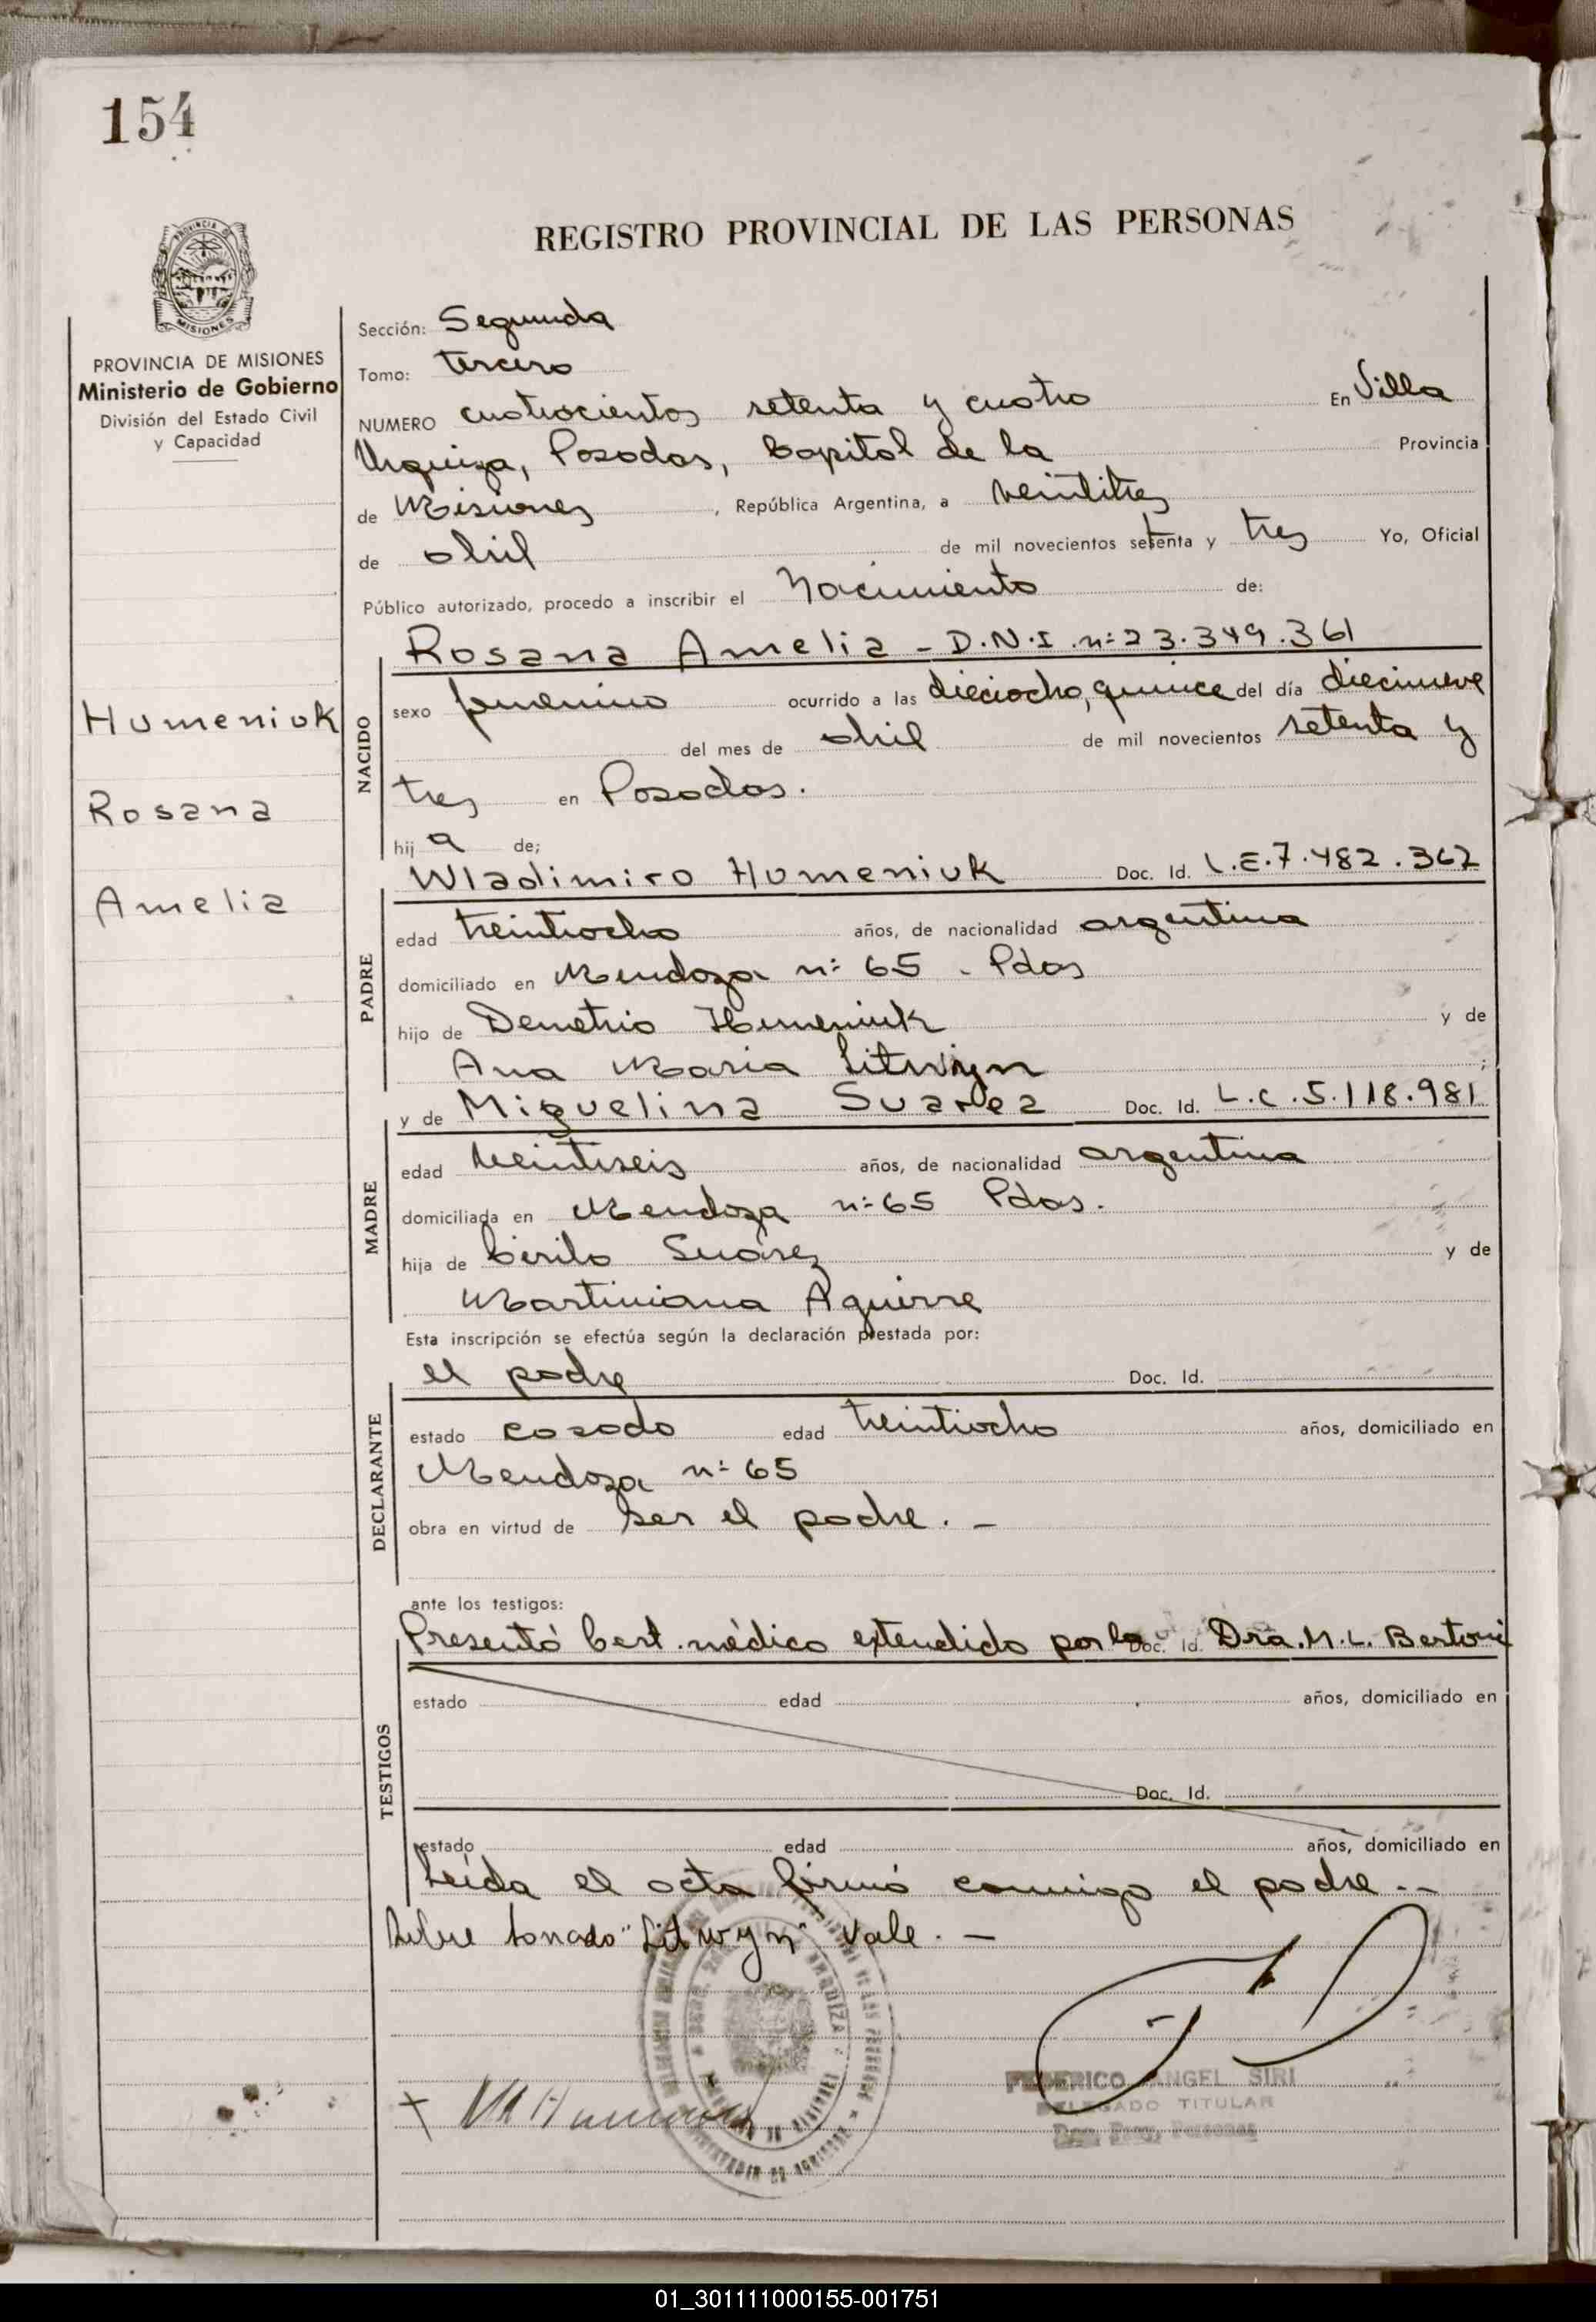 154
REGISTRO PROVINCIAL DE LAS PERSONAS
PROVINCIA DE
MISIONES
PROVINCIA DE MISIONES
Ministerio de Gobierno
División del Estado Civil
y Capacidad
Humeniuk
Rosana
Amelia
Sección: Segunda
Tomo: tercero
NUMERO cuatrocientos setenta y cuatro En Villa
Urquiza, Posadas, Capital de la Provincia
de Misiones , República Argentina, a veintitres
de abril de mil novecientos setenta y tres Yo, Oficial
Público autorizado, procedo a inscribir el Nacimiento de:
NACIDO
Rosana Amelia - D.N.I. nº 23.349.361
sexo femenino ocurrido a las dieciocho, quince del día diecinueve
del mes de abril de mil novecientos setenta y
tres en Posadas.
hij a de;
PADRE
Wladimiro Humeniuk Doc. Id. L.E. 7.482.362
edad treintiocho años, de nacionalidad argentina
domiciliado en Mendoza nº 65 - Pdas
hijo de Demetrio Humeniuk y de
Ana Maria Litwyn ;
MADRE
y de Miguelina Suarez Doc. Id. L.C. 5.118.981
edad veintiseis años, de nacionalidad argentina
domiciliada en Mendoza nº 65 Pdas.
hija de Cirilo Suárez y de
Martiniana Aguirre
Esta inscripción se efectúa según la declaración prestada por:
DECLARANTE
el padre Doc. Id.
estado casado edad treintiocho años, domiciliado en
Mendoza nº 65
obra en virtud de ser el padre. -
ante los testigos:
TESTIGOS
Presentó Cert. médico extendido por la Doc. Id. Dra. M. L. Bertoni
estado edad años, domiciliado en
Doc. Id.
estado edad años, domiciliado en
Leída el acta firmó conmigo el padre --
Sobre borrado "Litwyn" Vale. -
FEDERICO ANGEL SIRI
DELEGADO TITULAR
01_301111000155-001751